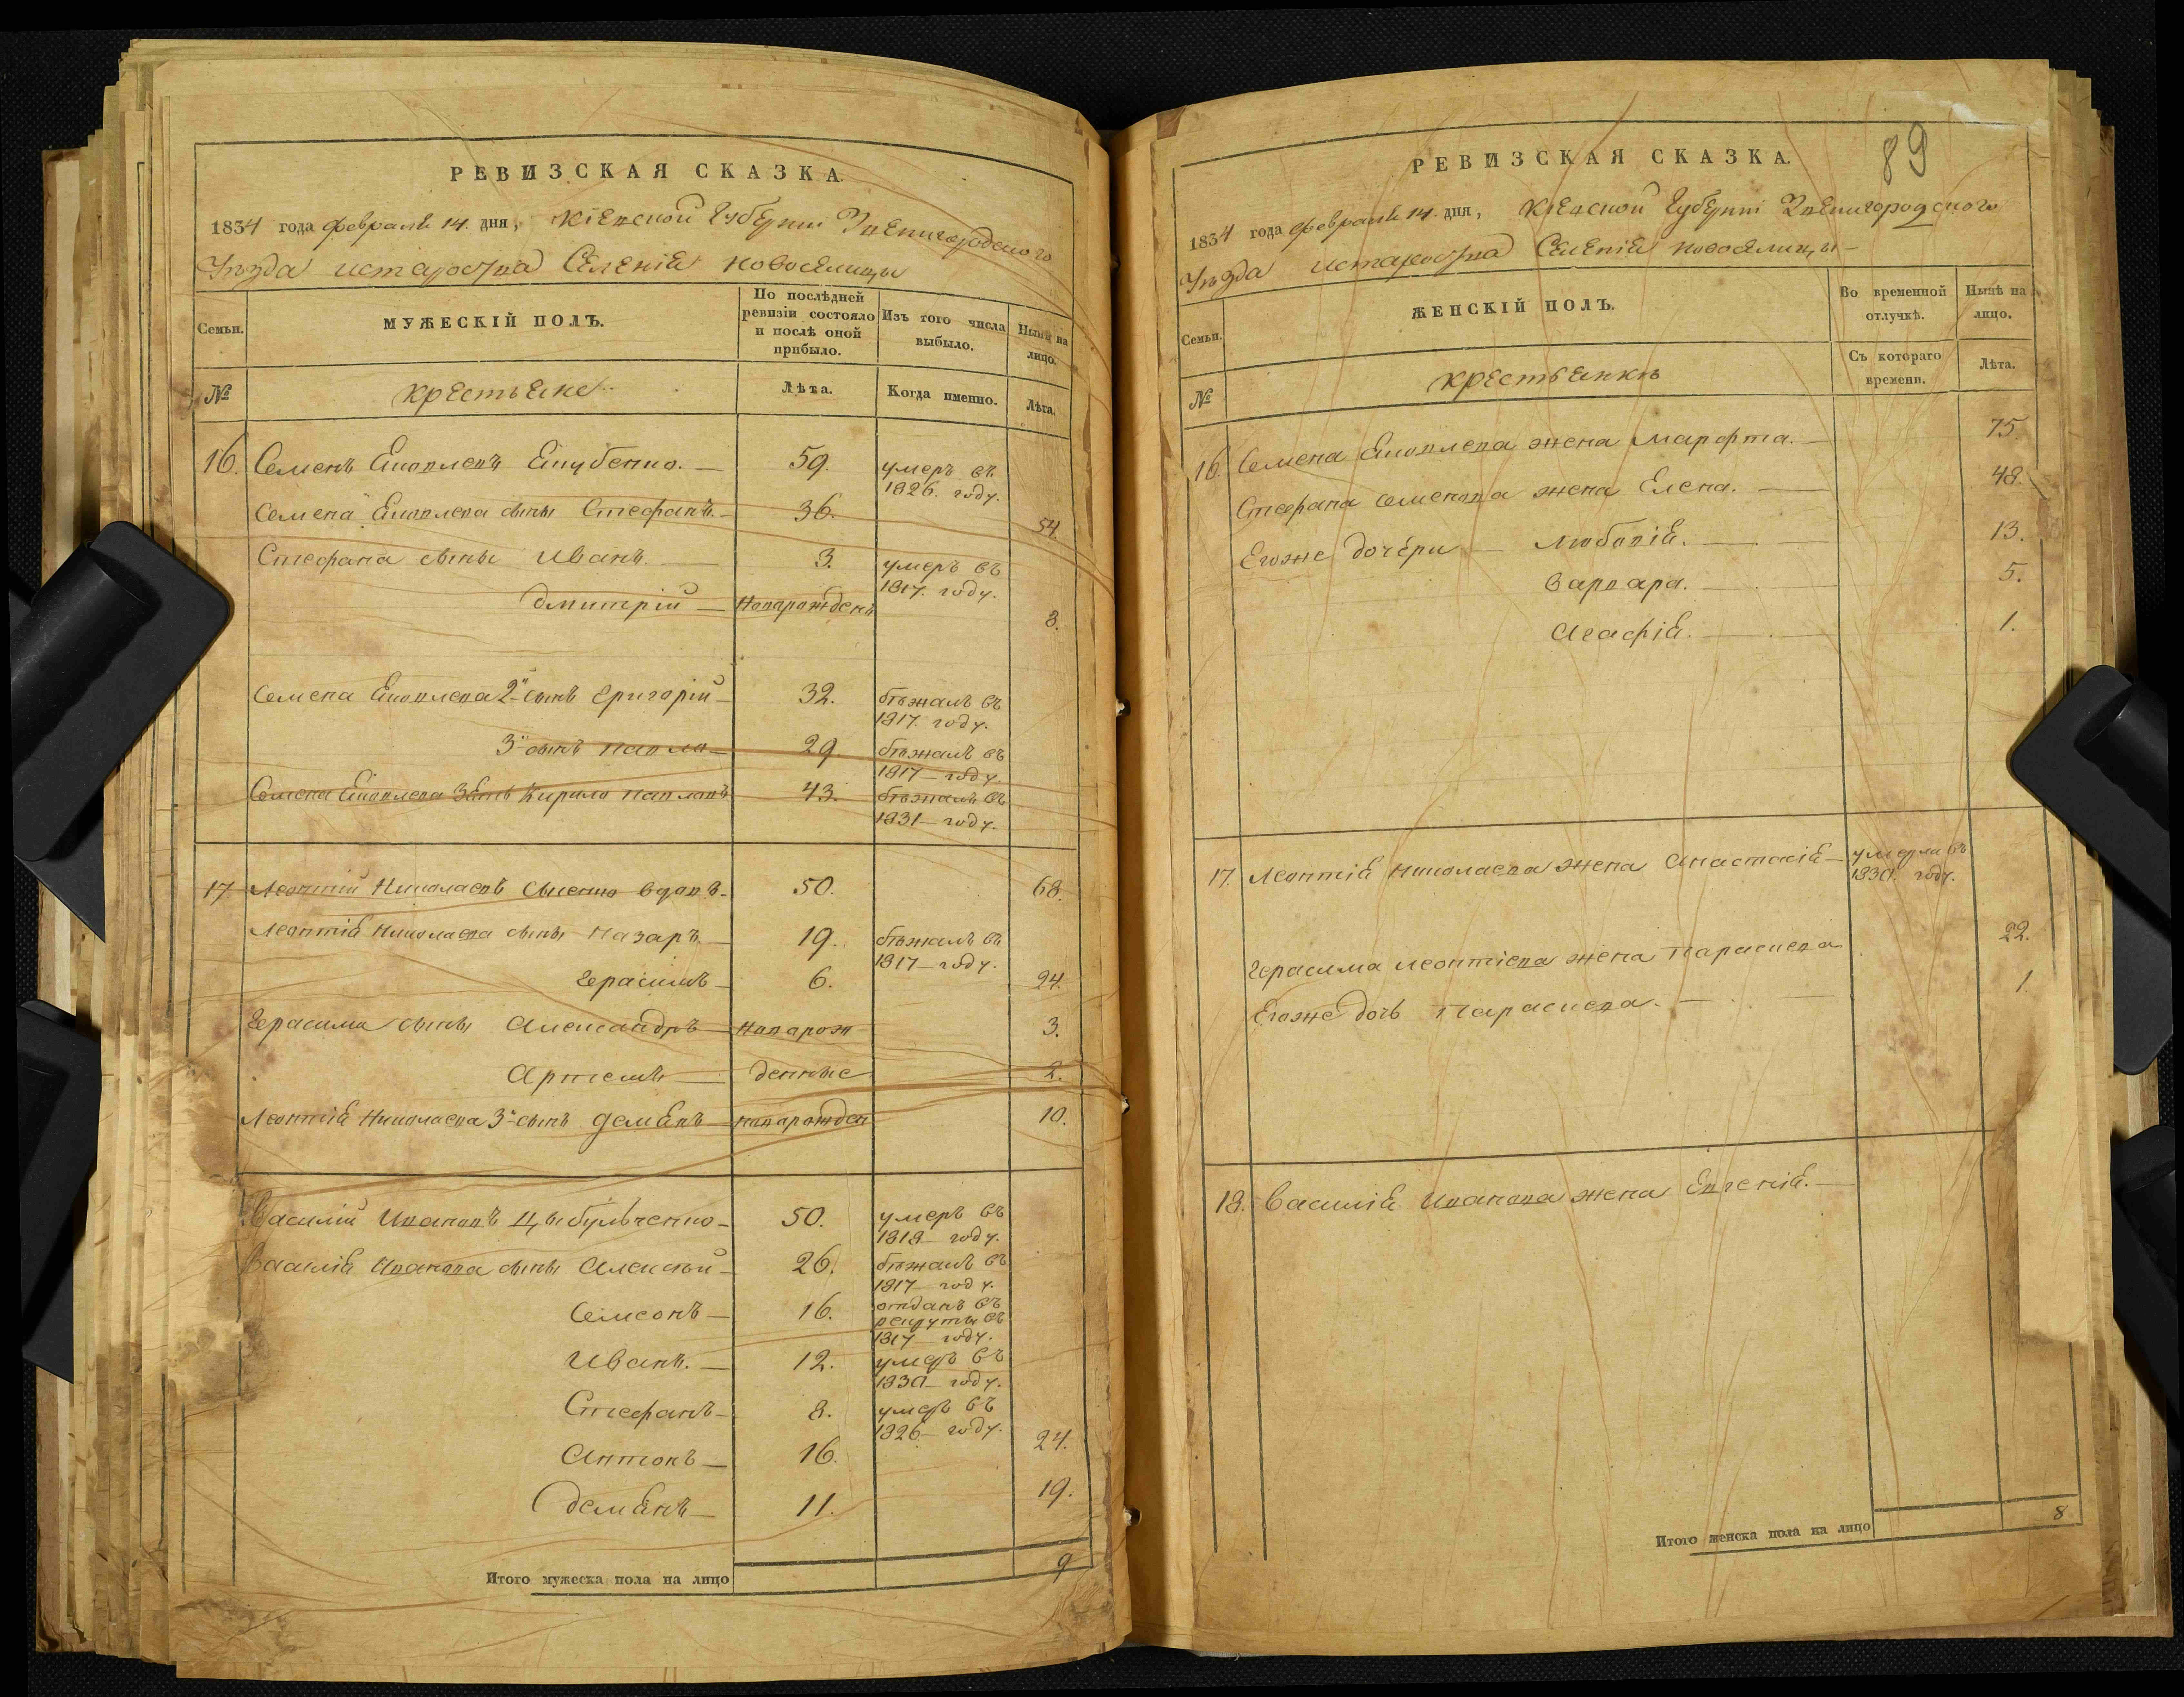 РЕВИЗСКАЯ СКАЗКА.
1834 года февраля 14. дня, Кіевской Губерніи Звенигородского
Уезда истароства Селенія новоселицы
Семьи.
МУЖЕСКІЙ ПОЛЪ.
По послѣдней ревизіи состояло и послѣ оной прибыло.
Изъ того числа выбыло.
Нынѣ на лицо.
№
крестьяне
Лѣта.
Когда именно.
Лѣта.
16. Семенъ Яковлевъ 59. умеръ въ
1826. году.
Семена Яковлева сынъ Стефанъ. 36. 54.
Стефана сыны Иванъ. 3. умеръ въ
1817. году.
дмитрій новорожденъ 3.
Семена Яковлева 2й сынъ Григорій 32. бѣжалъ въ
1817. году.
3й сынъ павло 29. бѣжалъ въ
1817 году.
Семена Яковлева зять Кирило павловъ 43. бѣжалъ въ
1831 году.
17 Леонтій Николаевъ вдовъ. 50. 68.
Леонтія Николаева сыны Назаръ 19. бѣжалъ въ
1817 году.
Герасимъ 6. 24.
Герасима сыны Александръ новорож 3.
Артемъ денные 2.
Леонтія Николаева 3й сынъ демянъ новорожден 10.
Василій Ивановъ Цыбульченко 50. умеръ въ
1818 году.
Василія Иванова сыны Алексѣй 26. бѣжалъ въ
1817 году.
Самсонъ 16. отданъ въ
рекруты въ
1817 году.
Иванъ. 12. умеръ въ
1830 году.
Стефанъ 8. умеръ въ
1826 году.
Антонъ 16. 24.
демянъ 11. 19.
Итого мужеска пола на лицо 9
89
РЕВИЗСКАЯ СКАЗКА.
1834 года февраля 14. дня, Кіевской Губерніи Звенигородского
Уезда истароства Селенія новоселицы
Семьи.
ЖЕНСКІЙ ПОЛЪ.
Во временной отлучкѣ.
Нынѣ на лицо.
№
крестьянкѣ
Съ котораго времени.
Лѣта.
16. Семена Яковлева жена Марфта. 75.
Стефана семенова жена Елена. 48
Егоже дочери Любовія. 13.
Варвара. 5.
Агафія. 1.
17. Леонтія николаева жена Анастасія умерли въ
1830. году.
Герасима леонтіева жена параскева 22.
Егоже дочь Параскева. 1.
18. Василія Иванова жена Евгенія.
Итого женска пола на лицо 8